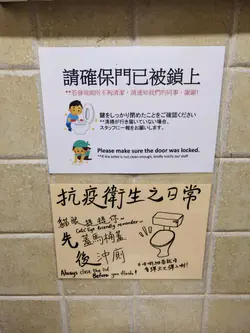 請確保門已被鎖上
**若發現廁所不夠清潔，請通知我們的同事，謝謝!
鍵をしっかり閉めたことをご確認ください
**清掃が行き届いていない場合、
スタッフに一報をお願いします。
Please make sure the door was locked.
**If the toilet is not clean enough, kindly notify our staff
抗疫衛生之日常
貓眼提提你~
Cat's Eye friendly reminder~
先蓋馬桶蓋
後沖廁
Always close the lid
Before you flush!